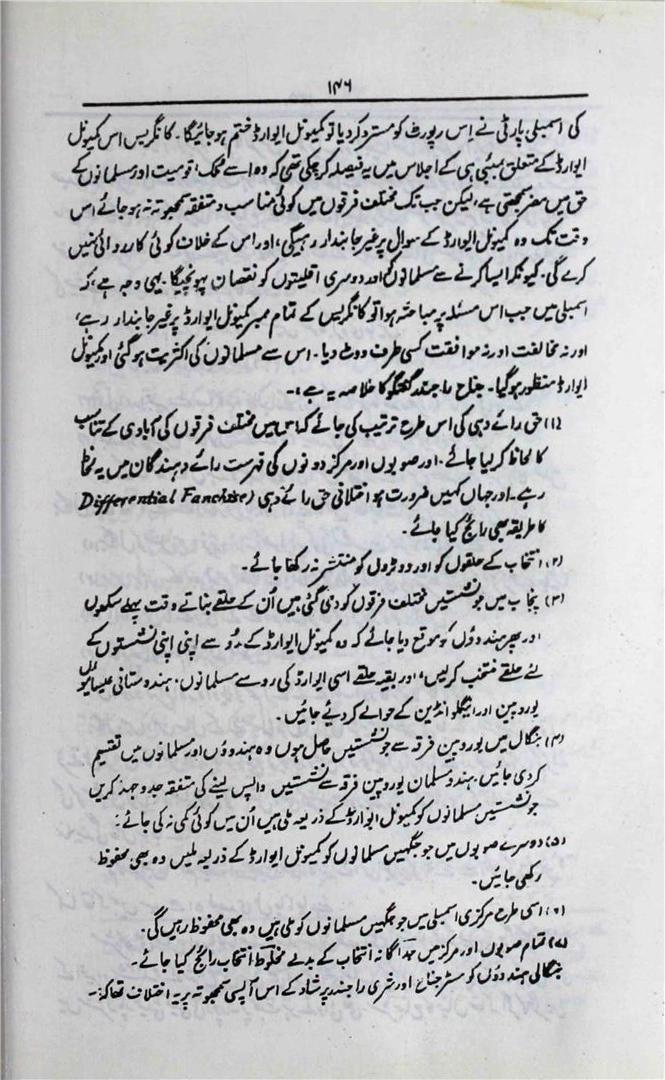 ۱۴۶
کی اسمبلی پارٹی نے اِس رپورٹ کو مسترد کردیا تو کمیونل ایوارڈ ختم ہوجائیگا۔ کانگریس اس کمیونل
ایوارڈ کے متعلق بمبئی ہی کے اجلاس میں یہ فیصلہ کرچکی تھی کہ وہ اسے ملک، قومیت اور مسلمانوں کے
حق میں مضر سمجھتی ہے، لیکن جب تک مختلف فرقوں میں کوئی مناسب و متفقہ سمجھوتہ نہ ہوجائے اس
وقت تک وہ کمیونل ایوارڈ کے سوال پر غیر جانبدار رہیگی، اور اس کے خلاف کوئی کارروائی نہیں
کرے گی۔ کیونکہ ایسا کرنے سے مسلمانوں کو اور دوسری اقلیتوں کو نقصان پہونچیگا۔ یہی وجہ ہے، کہ
اسمبلی میں جب اس مسئلہ پر مباحثہ ہوا تو کانگریس کے تمام ممبر کمیونل ایوارڈ پر غیر جانبدار رہے،
اور نہ مخالفت اور نہ موافقت کسی طرف ووٹ دیا۔ اس سے مسلمانوں کی اکثریت ہوگئی اور کمیونل
ایوارڈ منظور ہوگیا۔ جناح راجندر گفتگو کا خلاصہ یہ ہے:۔
(۱) حق رائے دہی کی اس طرح ترتیب کی جائے کہ اس میں مختلف فرقوں کی آبادی کے تناسب
کا لحاظ کرلیا جائے۔ اور صوبوں اور مرکز دونوں کی فہرست رائے دہندگان میں یہ لحاظ
رہے۔ اور جہاں کہیں ضرورت ہو اختلافی حق رائے دہی (Differential Fanchise
کا طریقہ بھی رائج کیا جائے۔
(۲) انتخاب کے حلقوں کو اور ووٹروں کو منتشر نہ رکھا جائے۔
(۳) پنجاب میں جو نشستیں مختلف فرقوں کو دی گئی ہیں اُن کے حلقے بناتے وقت پہلے سکھوں
اور پھر ہندوؤں کو موقع دیا جائے کہ وہ کمیونل ایوارڈ کے رُو سے اپنی اپنی نشستوں کے
لئے حلقے منتخب کرلیں، اور بقیہ حلقے اسی ایوارڈ کی رو سے مسلمانوں، ہندوستانی عیسائیوں
یوروپین اور اینگلو انڈین کے حوالے کردیئے جائیں۔
(۴) بنگال میں یوروپین فرقہ سے جو نشستیں حاصل ہوں وہ ہندوؤں اور مسلمانوں میں تقسیم
کردی جائیں۔ ہندو مسلمان یوروپین فرقہ سے نشستیں واپس لینے کی متفقہ جدوجہد کریں
جو نشستیں مسلمانوں کو کمیونل ایوارڈ کے ذریعہ ملی ہیں اُن میں کوئی کمی نہ کی جائے۔
(۵) دوسرے صوبوں میں جو جگہیں مسلمانوں کو کمیونل ایوارڈ کے ذریعہ ملیں وہ بھی محفوظ
رکھی جائیں۔
(۶) اسی طرح مرکزی اسمبلی میں جو جگہیں مسلمانوں کو ملی ہیں وہ بھی محفوظ رہیں گی۔
(۷) تمام صوبوں اور مرکز میں جداگانہ انتخاب کے بدلے مخلوط انتخاب رائج کیا جائے۔
بنگالی ہندوؤں کو مسٹر جناح اور شری راجندر پرشاد کے اس آپسی سمجھوتہ پر یہ اختلاف تھا کہ:۔